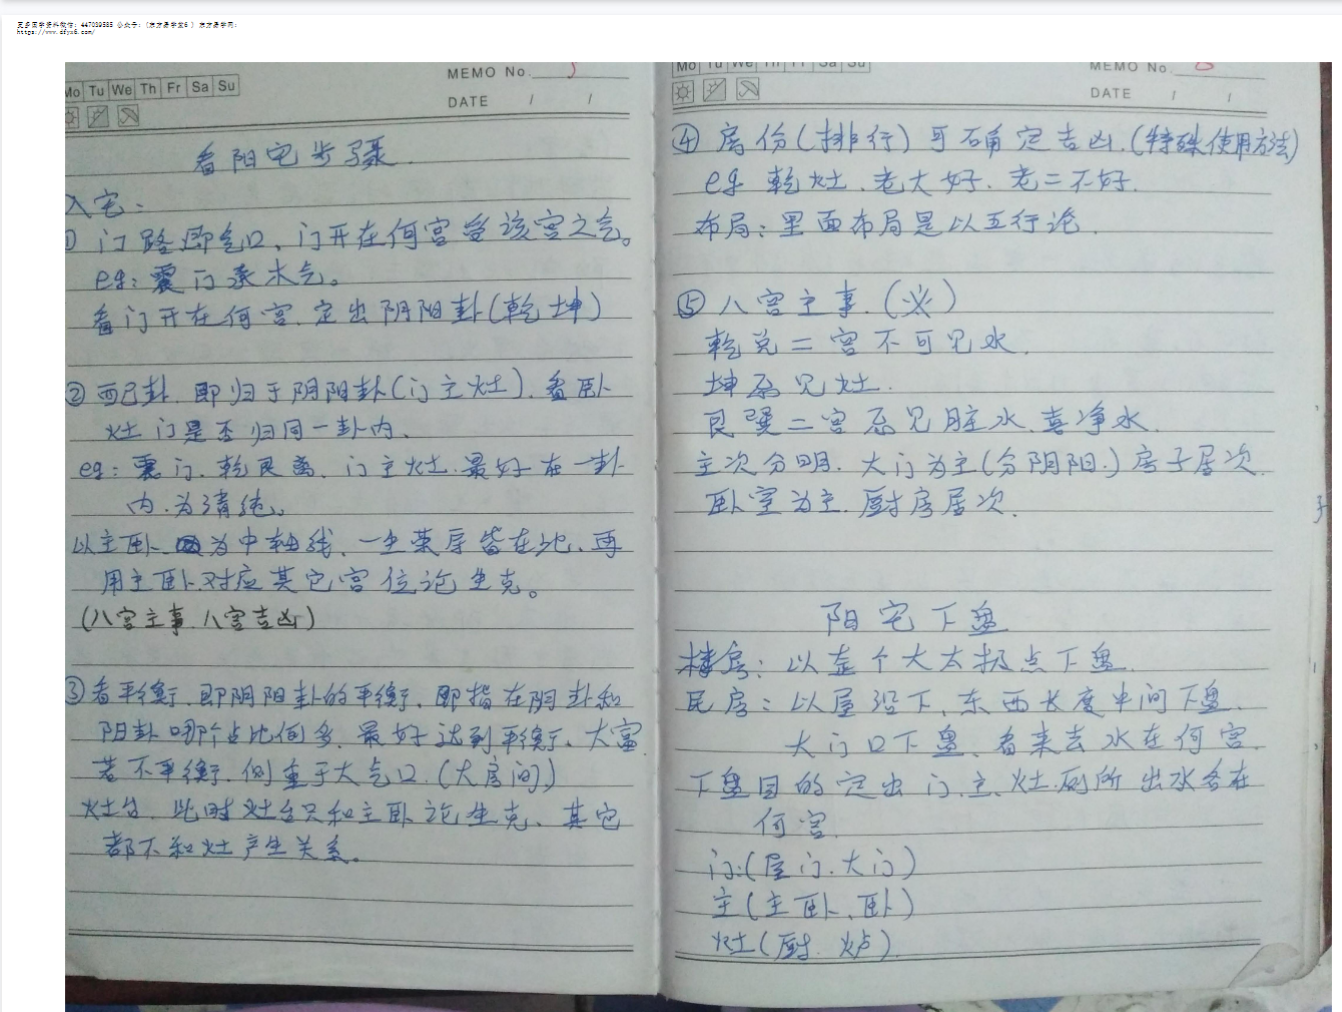 更多国学资料微信：447039585 公众号：（东方易学堂6 ） 东方易学网：
https://www.dfyx6.com/
Mo Tu We Th Fr Sa Su
MEMO No. 5
DATE / /
看阳宅步骤.
入宅：
① 门路即气口、门开在何宫受该宫之气。
eg：震门承木气。
看门开在何宫.定出阴阳卦(乾坤)
② 配卦.即归于阴阳卦(门主灶).看卧
灶门是否归同一卦内.
eg：震门.乾艮离、门主灶.最好在一卦
内.为清纯。
以主卧为中轴线、一生荣辱皆在此、再
用主卧对应其它宫位论生克。
(八宫主事.八宫吉凶)
③看平衡.即阴阳卦的平衡、即指在阴卦和
阳卦哪个占比例多.最好达到平衡、大富.
若不平衡.侧重于大气口.(大房间)
灶台.此时灶台只和主卧论生克、其它
都不和灶产生关系。
Mo Tu We Th Fr Sa Su
MEMO No. 6
DATE / /
④ 房份(排行)可确定吉凶.(特殊使用方法)
eg 乾灶.老大好.老二不好.
布局：里面布局是以五行论.
⑤ 八宫主事.(必)
乾兑二宫不可见水.
坤忌见灶.
艮巽二宫忌见脏水.喜净水.
主次分明.大门为主(分阴阳.)房子居次.
卧室为主.厨房居次.
阳宅下盘
楼房：以整个大太极点下盘.
民房：以屋沿下、东西长度中间下盘.
大门口下盘、看来去水在何宫.
下盘目的定出门.主.灶.厕所出水各在
何宫.
门:(屋门.大门)
主(主卧、卧)
灶(厨.炉).